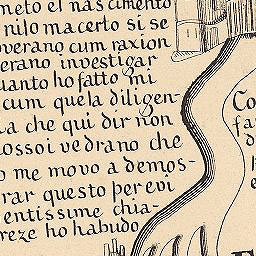 meto el nascimento
nilo ma certo si se
overano cum raxion
erano investigar
uanto ho fatto ogni
cum quela diligen-
ia che qui dir non
ossoi vedrano che
o me movo a demos-
rar questo per evi
entissime chia-
reze ho habudo
Co
fa
d